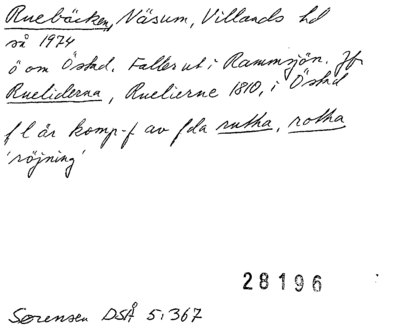 Ruebäcken, Näsum, Villands hd
så 1974
ö om Östad. Faller ut i Rammsjön. Jfr
Rueliderna, Ruelierne 1810, i Östad
f l är komp-f av fda rutha, rotha
'röjning'
28196
Sørensen DSÅ 5:367